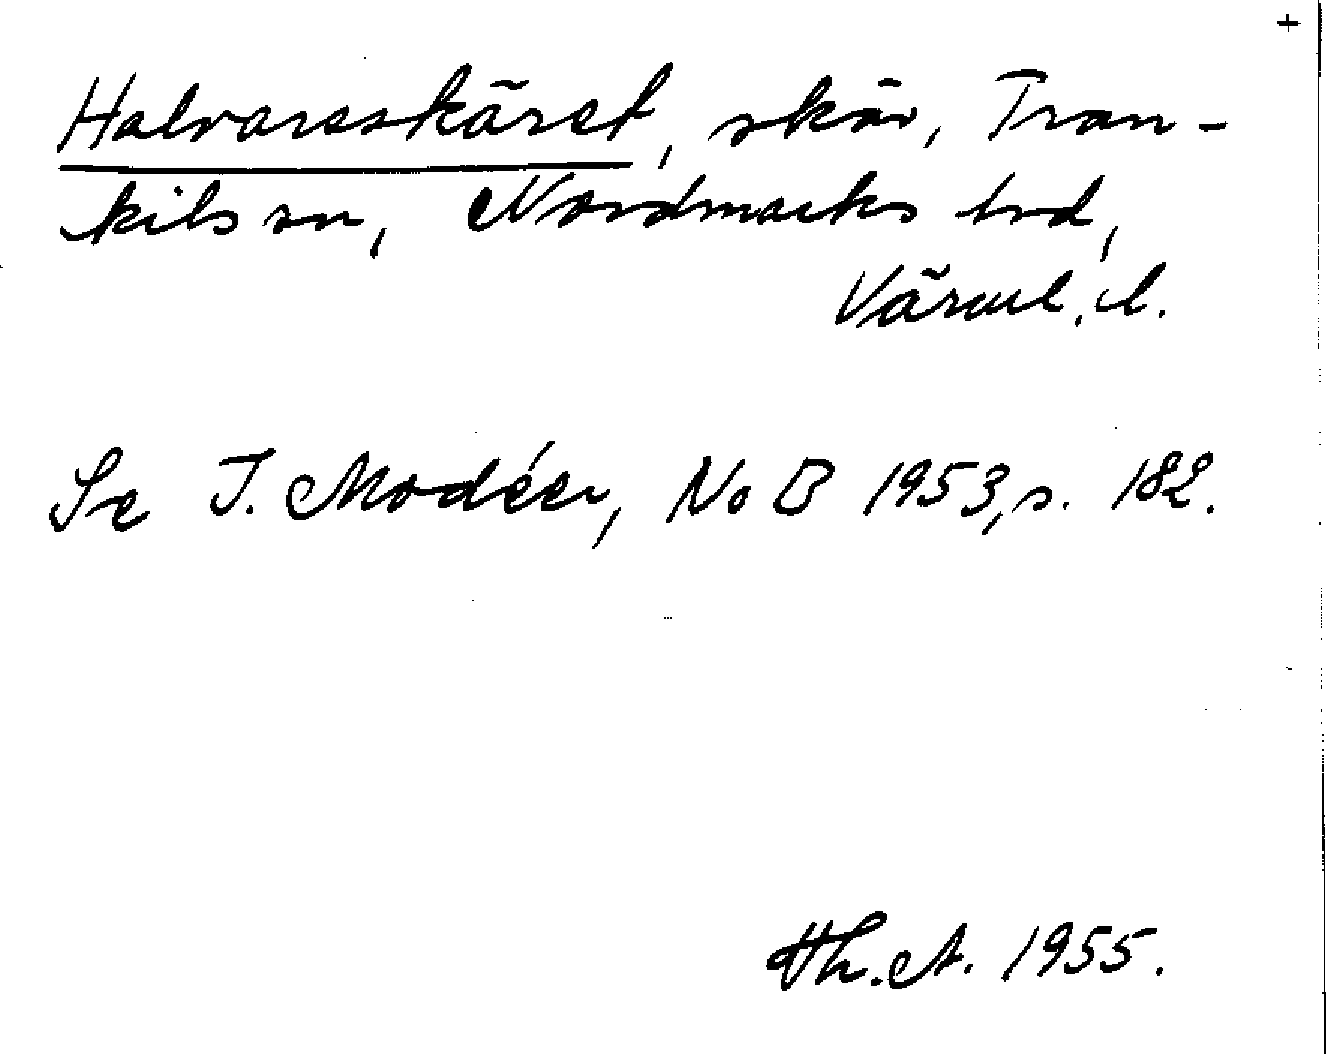 +
Halvaresskäret, skär, Tran-
kils sn, Nordmarks hrd,
Värml. l.
Se I. Modéer, NoB 1953, s. 182.
Th. A. 1955.